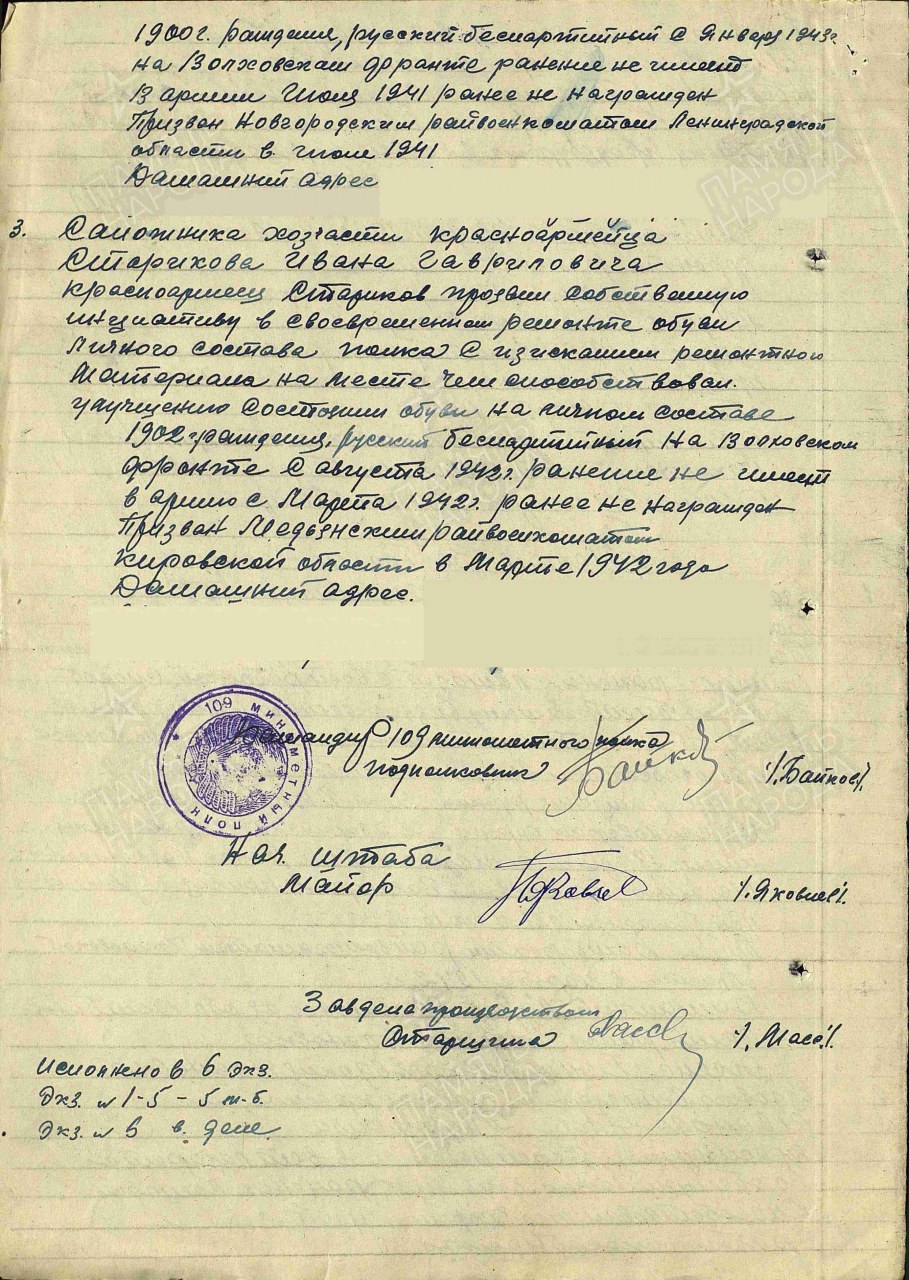 1900 г. рождения, русский беспартийный с Января 1943 г.
на Волховском фронте ранение не имеет
В армии Июля 1941 ранее не награжден
Призван Новгородским райвоенкоматом Ленинградской
области в июле 1941
Домашний адрес
3. Сапожника хозчасти красноармейца
Старикова Ивана Гавриловича
Красноармеец Стариков проявил собственную
инциативу в своевременном ремонте обуви
личного состава полка с изисканием ремонтного
материала на месте чем способствовал
улучщению состоянии обуви на личном составе
1902 г. рождения, русский беспартийный на Волховском
фронте с августа 1942 г. ранение не имеет
в армию с Марта 1942 г. ранее не награжден
Призван Медянским райвоенкоматом
Кировской области в Марте 1942 года
Домашний адрес.
109 МИНОМЕТНЫЙ ПОЛК
Командир 109 минометного полка
подполковник /Байков/.
Нач. штаба
Майор /Яковлев/.
Завделопроизводством
Старшина /. Масс/.
Исполнено в 6 экз.
Экз. № 1-5 -
Экз. № 6 в. деле.
ПАМЯТЬ НАРОДА